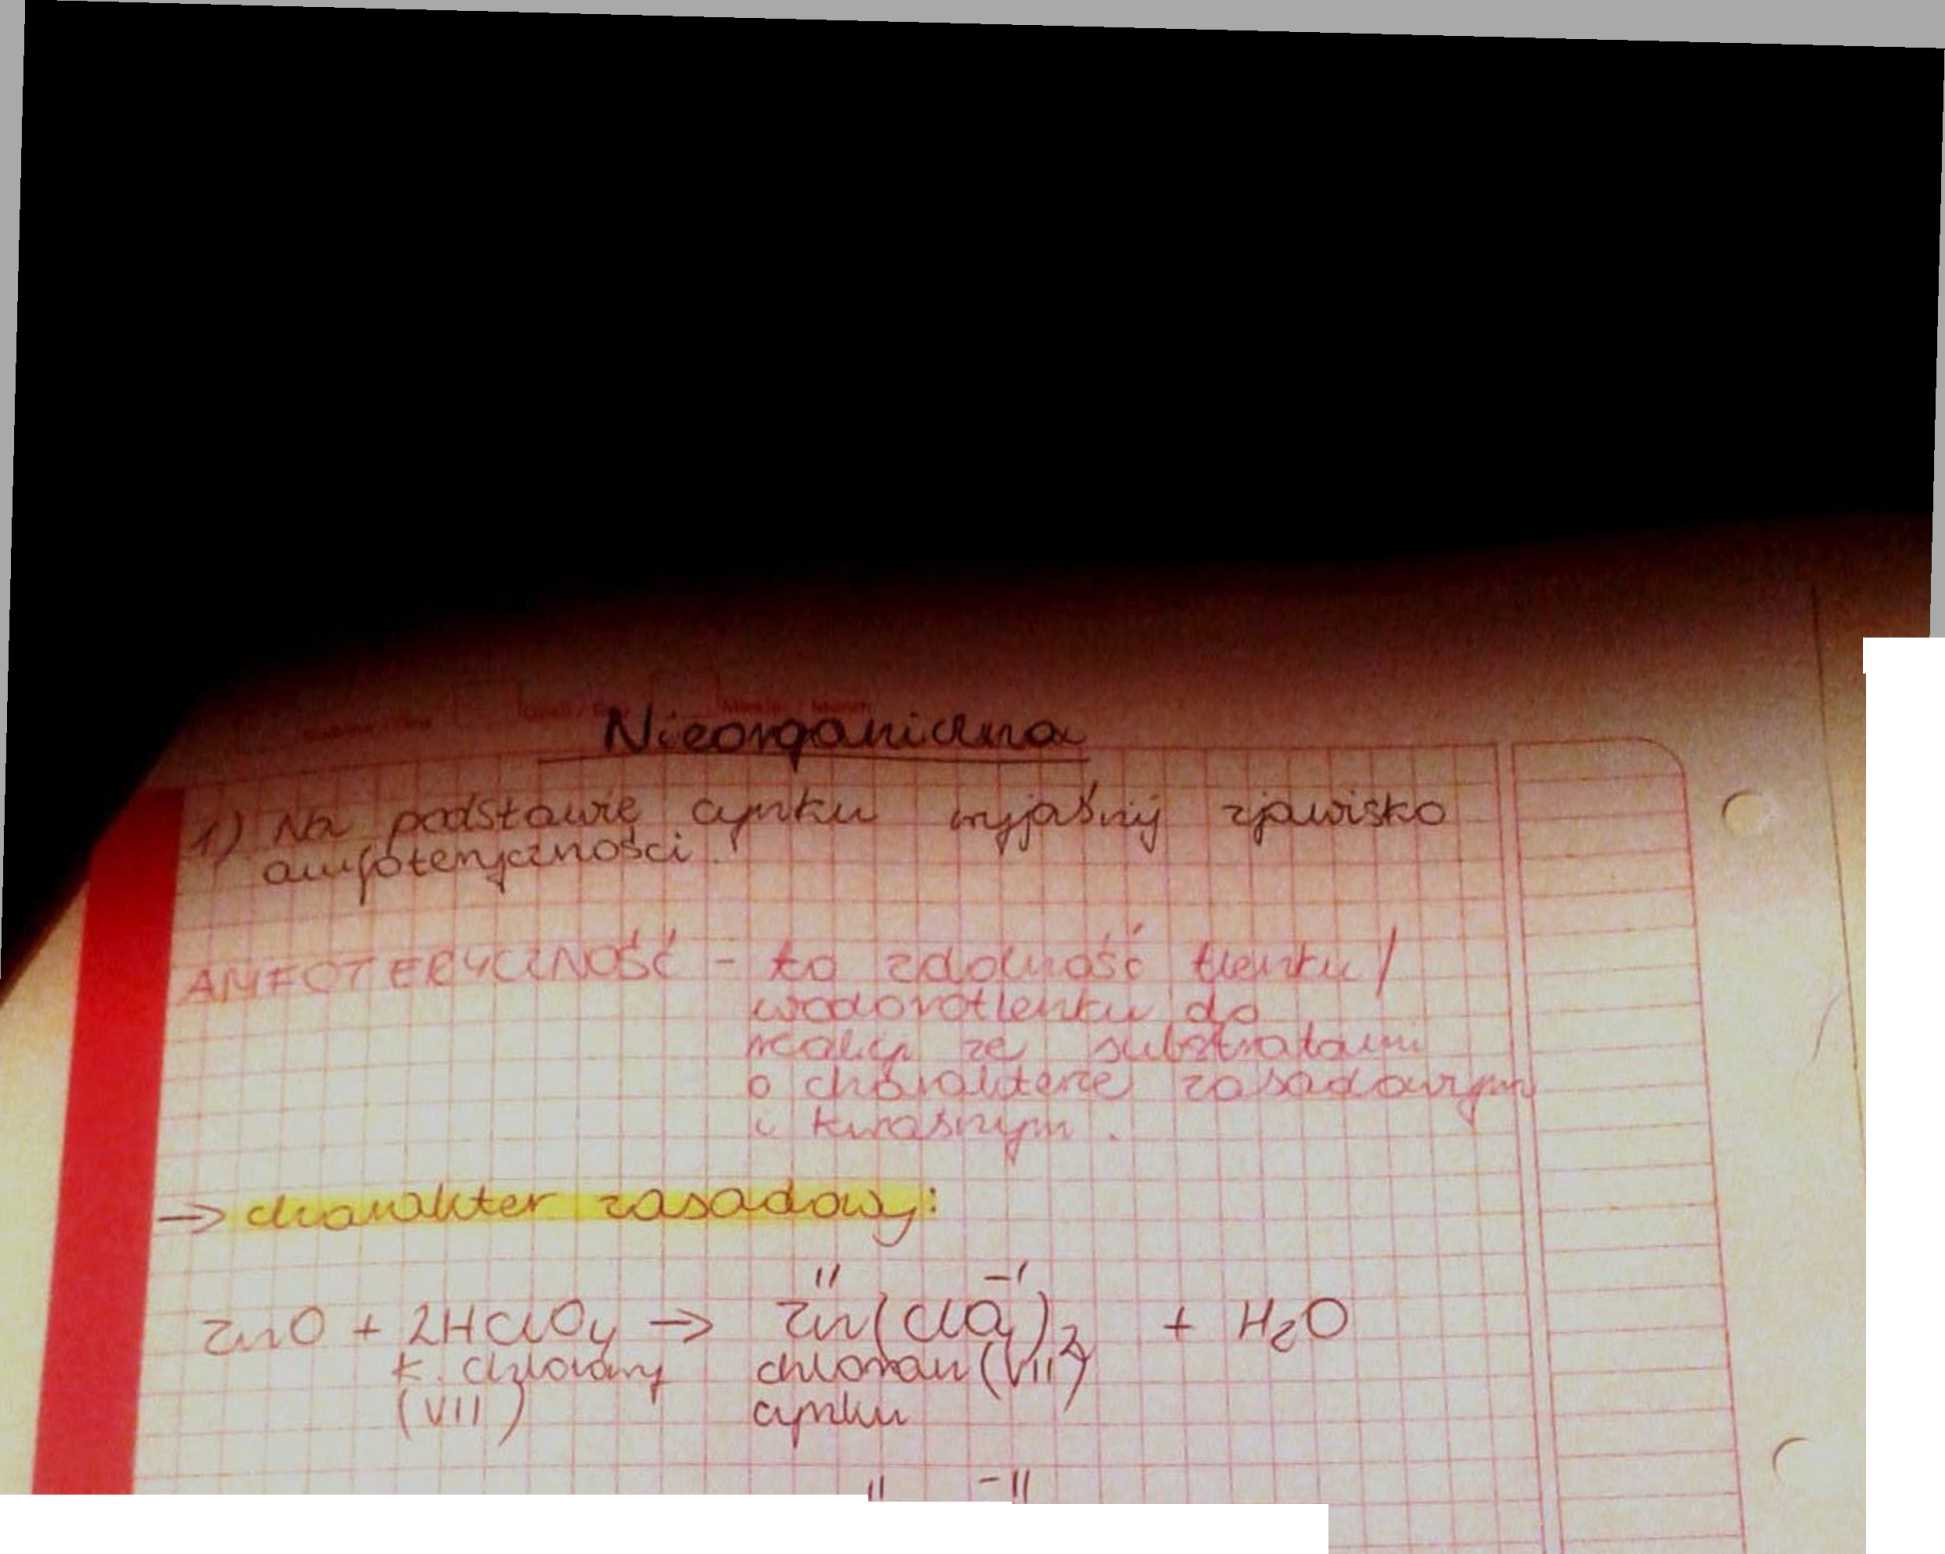 Nieorganiczna
1) Na podstawie cynku wyjaśnij zjawisko
amfoteryczności.
AMFOTERYCZNOŚĆ - to zdolność tlenku/
wodorotlenku do
reakcji ze substratami
o charakterze zasadowym
i kwasnym.
→ charakter zasadowy:
II -I
ZnO + 2HClO4 → Zn(ClO4)2 + H2O
k. chlorowy chloran (VII)
(VII) cynku
II -II